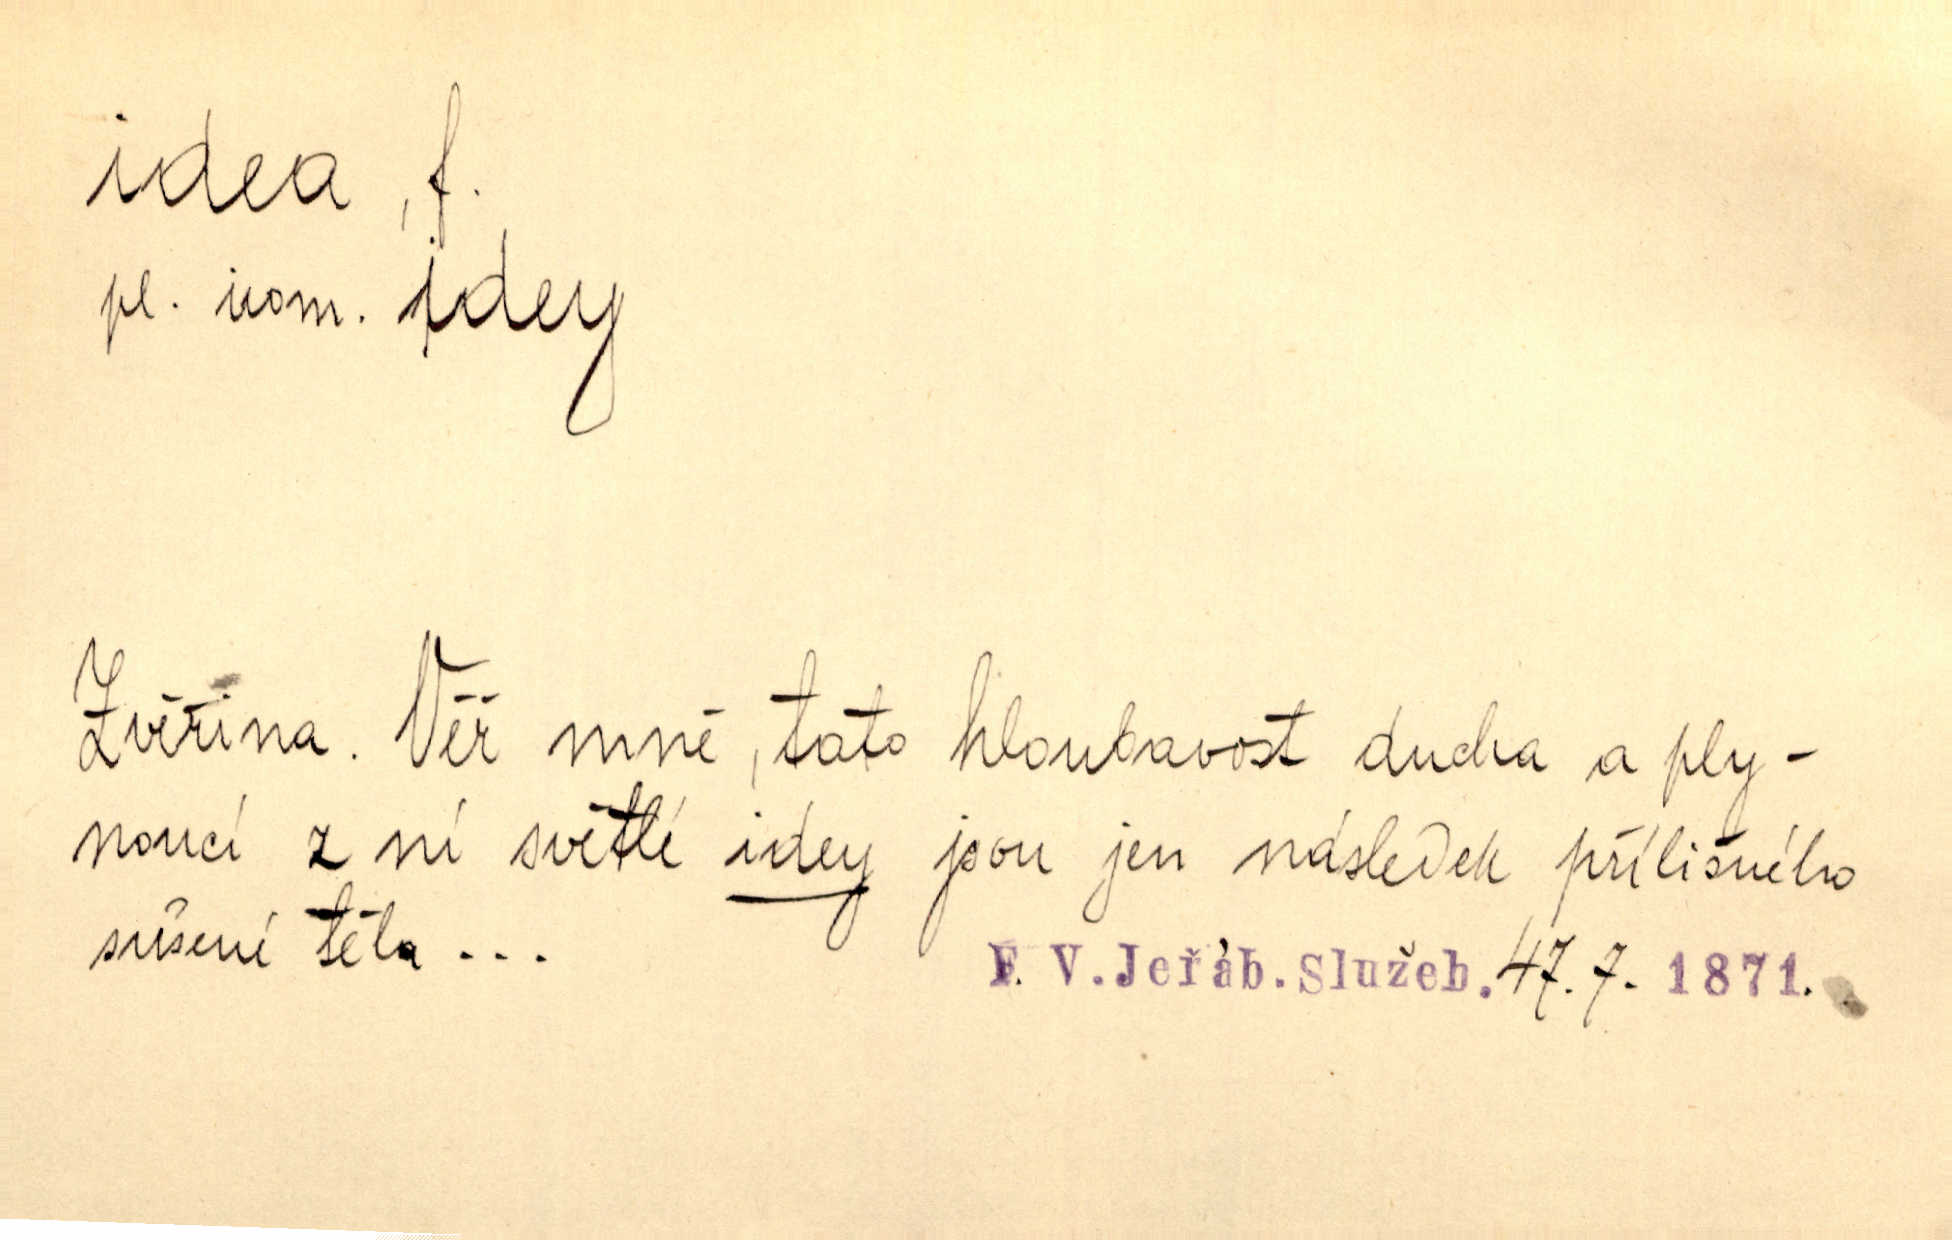 idea, f.
pl. nom. idey
Zvěřina. Věř mně, tato hloubavost ducha a ply-
noucí z ní světlé idey jsou jen následek přílišného
sušení těla ...
F. V. Jeřáb. Služeb. 47. 7. 1871.